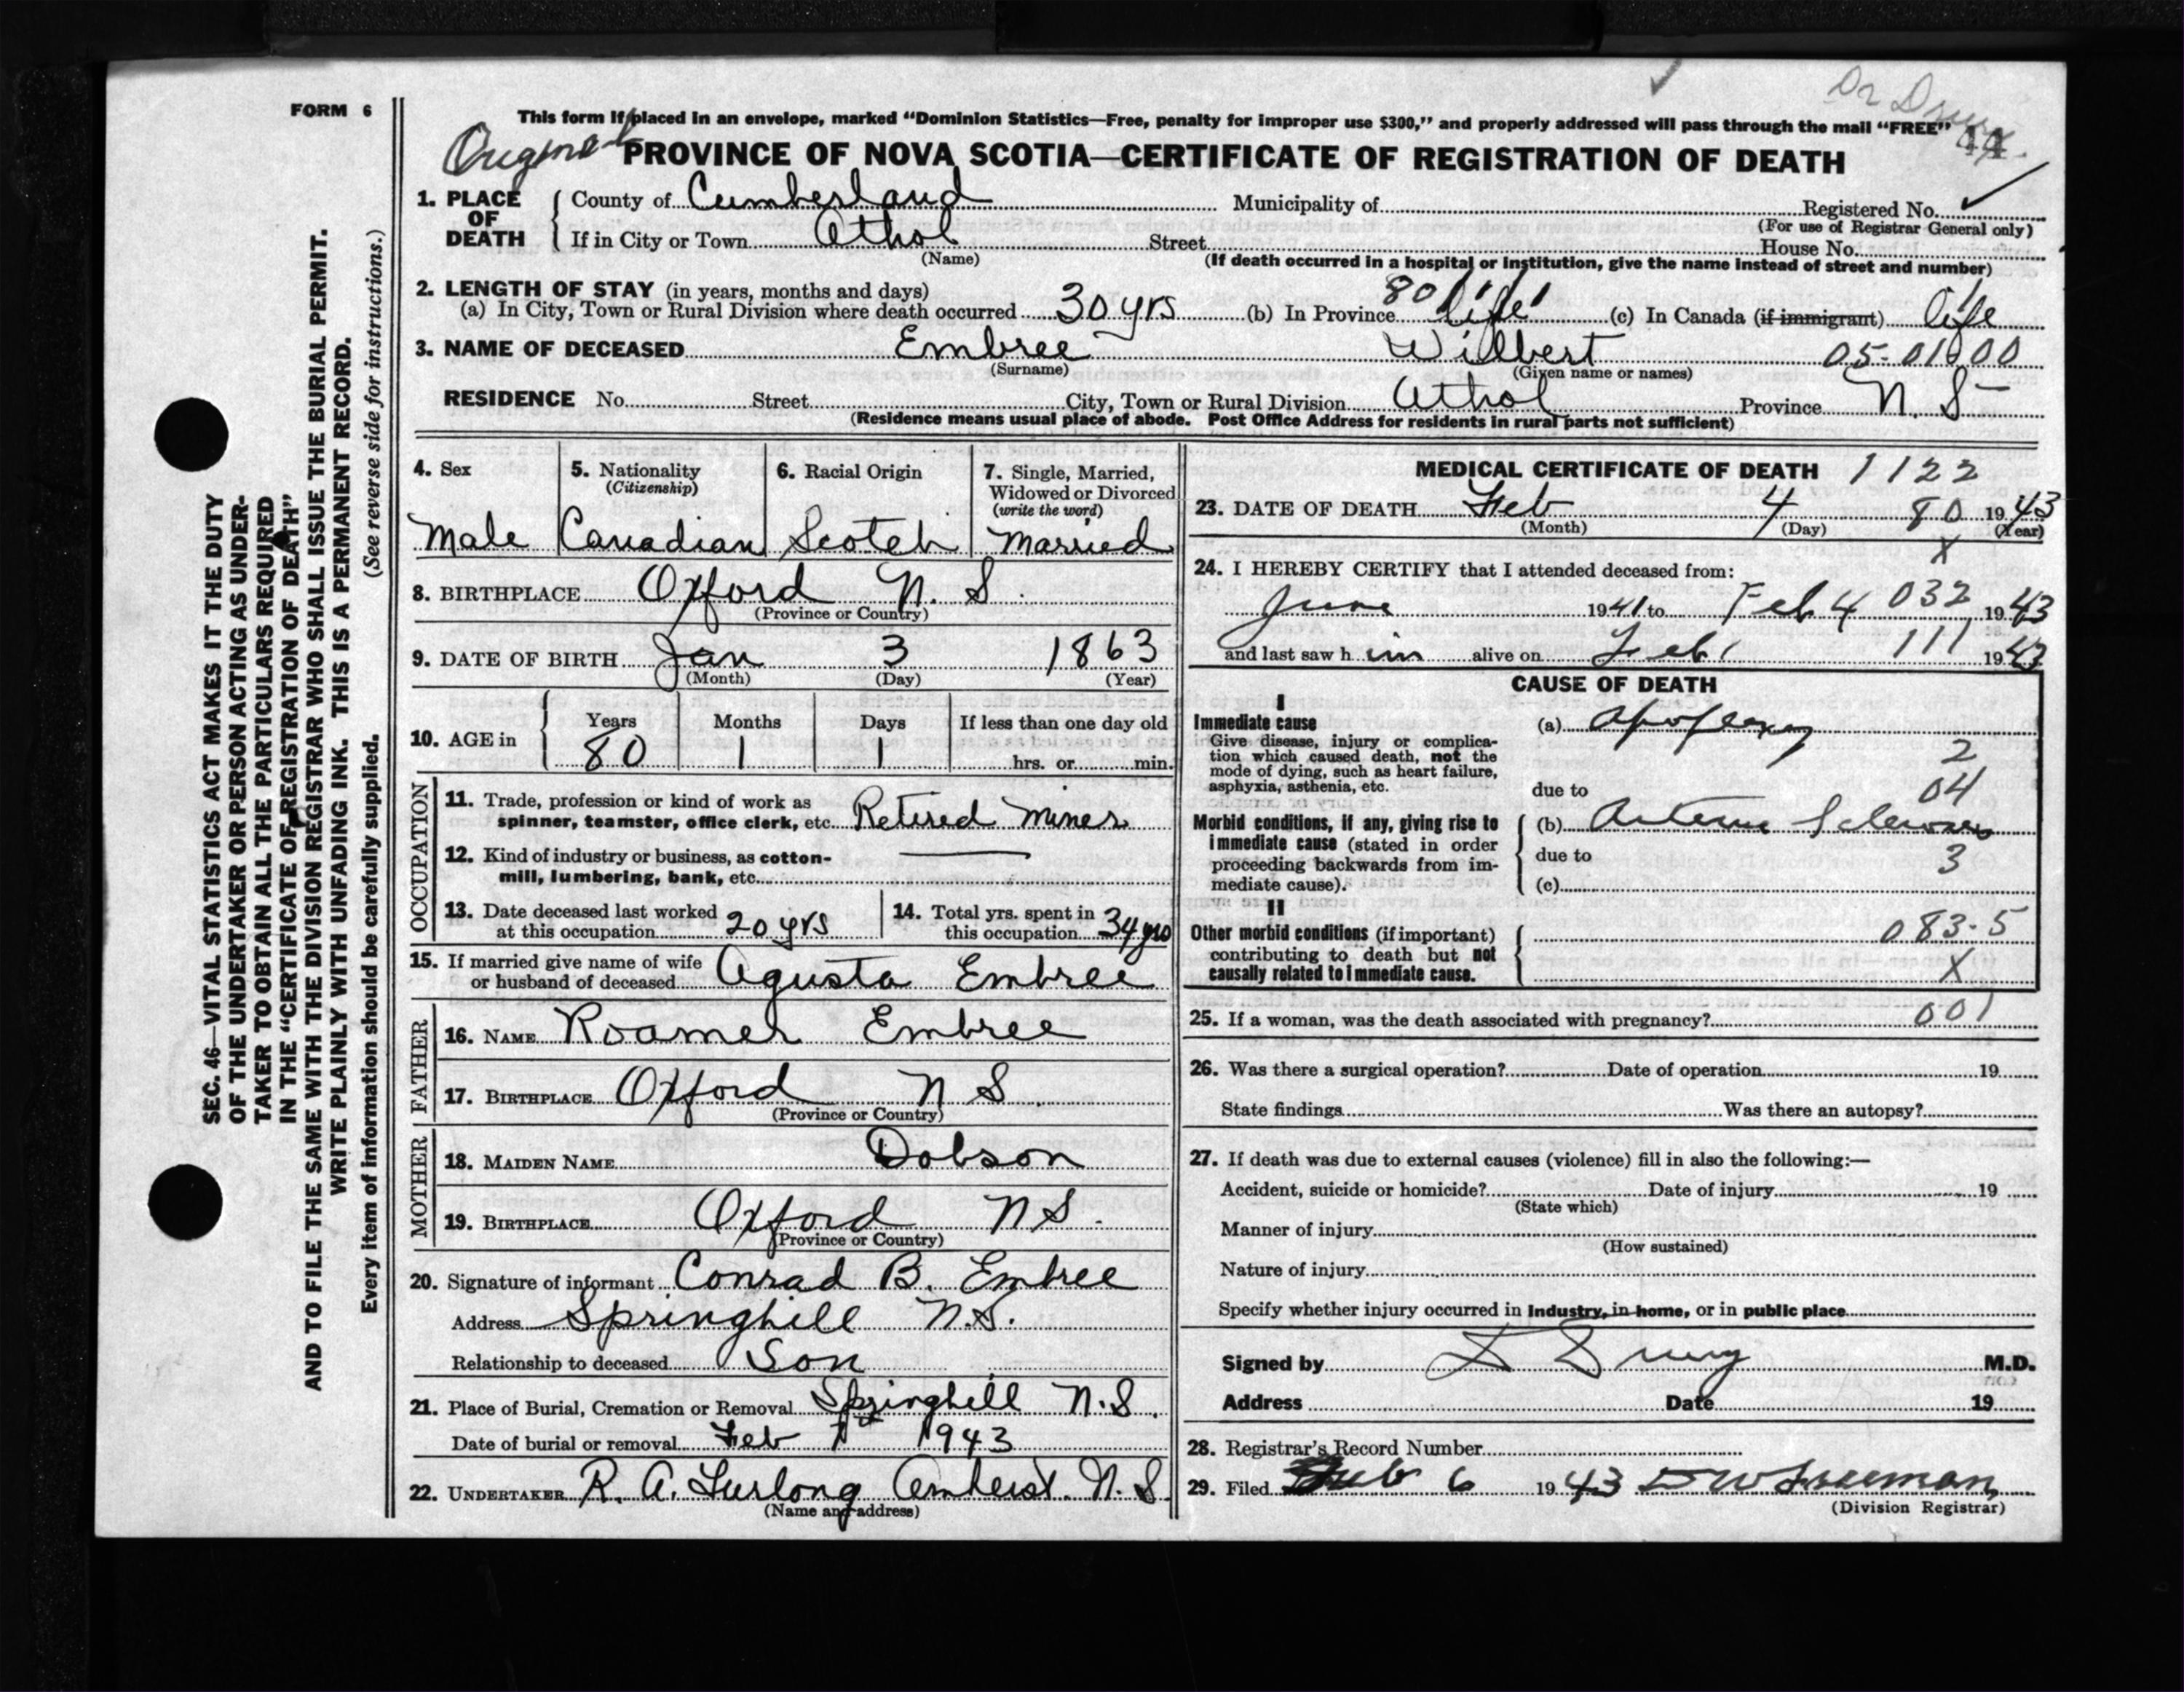 FORM 6
SEC. 46—VITAL STATISTICS ACT MAKES IT THE DUTY
OF THE UNDERTAKER OR PERSON ACTING AS UNDER-
TAKER TO OBTAIN ALL THE PARTICULARS REQUIRED
IN THE "CERTIFICATE OF REGISTRATION OF DEATH"
AND TO FILE THE SAME WITH THE DIVISION REGISTRAR WHO SHALL ISSUE THE BURIAL PERMIT.
WRITE PLAINLY WITH UNFADING INK. THIS IS A PERMANENT RECORD.
Every item of information should be carefully supplied. (See reverse side for instructions.)
Dr Drury
This form if placed in an envelope, marked "Dominion Statistics—Free, penalty for improper use $300," and properly addressed will pass through the mail "FREE"
Original
PROVINCE OF NOVA SCOTIA—CERTIFICATE OF REGISTRATION OF DEATH
1. PLACE OF DEATH
County of Cumberland Municipality of Registered No.
(For use of Registrar General only)
If in City or Town Athol Street House No.
(Name) (If death occurred in a hospital or institution, give the name instead of street and number)
2. LENGTH OF STAY (in years, months and days)
(a) In City, Town or Rural Division where death occurred 30 yrs (b) In Province 80 life (c) In Canada (if immigrant) life
3. NAME OF DECEASED Embree Wilbert 05-01000
(Surname) (Given name or names)
RESIDENCE No. Street City, Town or Rural Division Athol Province N. S
(Residence means usual place of abode. Post Office Address for residents in rural parts not sufficient)
4. Sex 5. Nationality (Citizenship) 6. Racial Origin 7. Single, Married, Widowed or Divorced (write the word)
Male Canadian Scotch Married
8. BIRTHPLACE Oxford N. S.
(Province or Country)
9. DATE OF BIRTH Jan 3 1863
(Month) (Day) (Year)
10. AGE in Years Months Days If less than one day old
80 1 1 hrs. or min.
OCCUPATION
11. Trade, profession or kind of work as
spinner, teamster, office clerk, etc. Retired Miner
12. Kind of industry or business, as cotton-
mill, lumbering, bank, etc.
13. Date deceased last worked
at this occupation 20 yrs
14. Total yrs. spent in
this occupation 34 yrs
15. If married give name of wife
or husband of deceased Agusta Embree
FATHER
16. NAME Roamer Embree
17. BIRTHPLACE Oxford N S.
(Province or Country)
MOTHER
18. MAIDEN NAME Dobson
19. BIRTHPLACE Oxford N S.
(Province or Country)
20. Signature of informant Conrad B. Embree
Address Springhill N.S.
Relationship to deceased Son
21. Place of Burial, Cremation or Removal Springhill N.S.
Date of burial or removal Feb 1943
22. UNDERTAKER R. A. Furlong Amherst. N. S
(Name and address)
MEDICAL CERTIFICATE OF DEATH 1122
23. DATE OF DEATH Feb 4 80 1943
(Month) (Day) (Year)
X
24. I HEREBY CERTIFY that I attended deceased from:
June 1941 to Feb 4 032 1943
and last saw h im alive on Feb 1 111 1943
CAUSE OF DEATH
I
Immediate cause
Give disease, injury or complica-
tion which caused death, not the
mode of dying, such as heart failure,
asphyxia, asthenia, etc.
(a) Apoplexy
2
due to 04
Morbid conditions, if any, giving rise to
immediate cause (stated in order
proceeding backwards from im-
mediate cause).
(b) Arterio Sclerosis
due to 3
(c)
II
Other morbid conditions (if important)
contributing to death but not
causally related to immediate cause.
083.5
X
25. If a woman, was the death associated with pregnancy? 001
26. Was there a surgical operation? Date of operation 19
State findings Was there an autopsy?
27. If death was due to external causes (violence) fill in also the following:—
Accident, suicide or homicide? Date of injury 19
(State which)
Manner of injury
(How sustained)
Nature of injury
Specify whether injury occurred in industry, in home, or in public place
Signed by Drury M.D.
Address Date 19
28. Registrar's Record Number
29. Filed Feb 6 1943 D W Freeman
(Division Registrar)